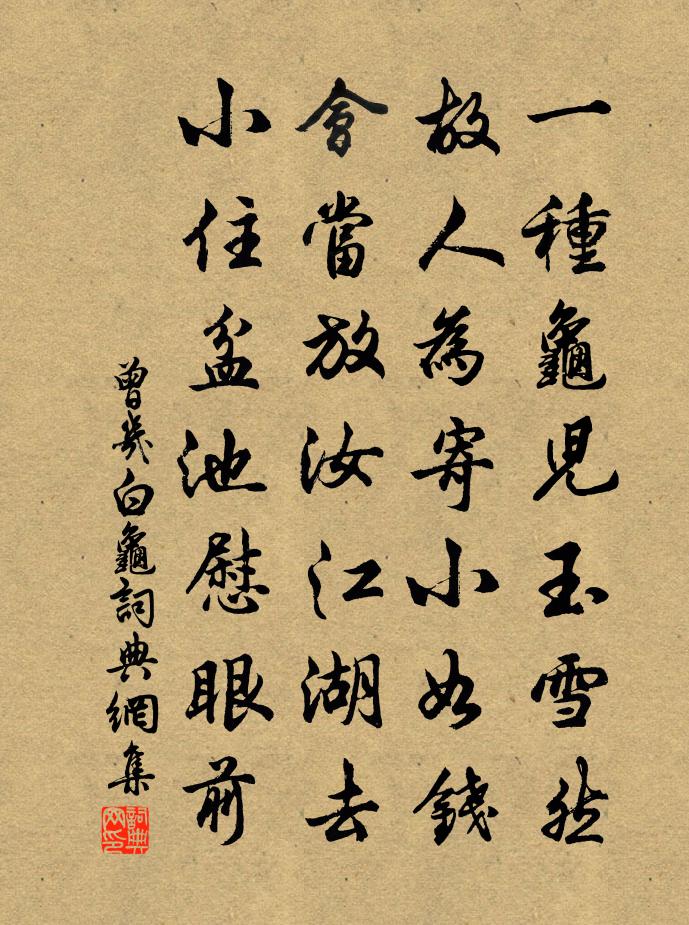 一種龜兒玉雪然
故人為寄小如錢
會當放汝江湖去
小住盆池慰眼前
曾幾白龜詞典網集
詞典网印